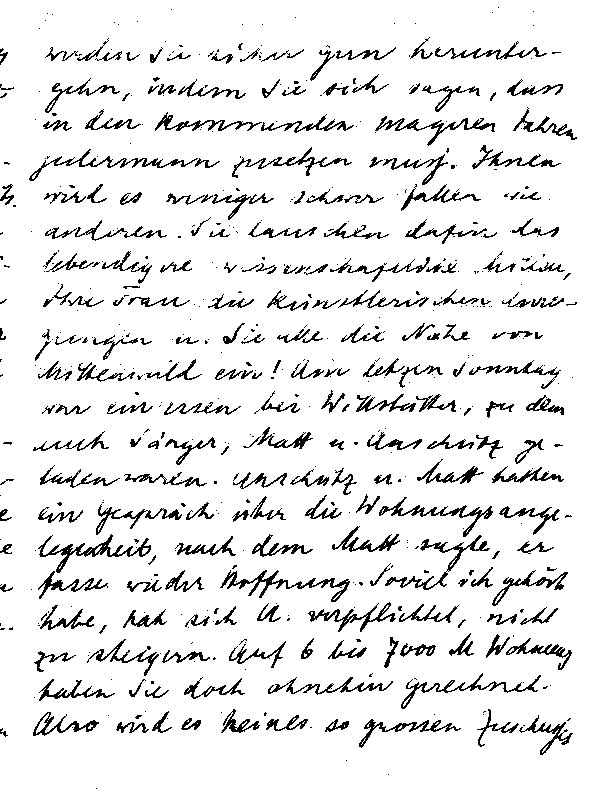 werden Sie sicher gern herunter-
gehn, indem Sie sich sagen, dass
in den kommenden mageren Jahren
jedermann zusetzen muss. Ihnen
wird es weniger schwer fallen wie
anderen. Sie tauschen dafür das
lebendigere wissenschaftliche Milieu,
Ihre Frau die künstlerischen Anre-
gungen u. Sie alle die Nähe von
Mittenwald ein! Am letzten Sonntag
war ein Essen bei Willstätter, zu dem
auch Sänger, Matt u. Anschütz ge-
laden waren. Anschütz u. Matt hatten
ein Gespräch über die Wohnungsange-
legenheit, nach dem Matt sagte, er
fasse wieder Hoffnung. Soviel ich gehört
habe, hat sich A. verpflichtet, nicht
zu steigern. Auf 6 bis 7000 M Wohnung
haben Sie doch ohnehin gerechnet.
Also wird es keines so grossen Zuschusses